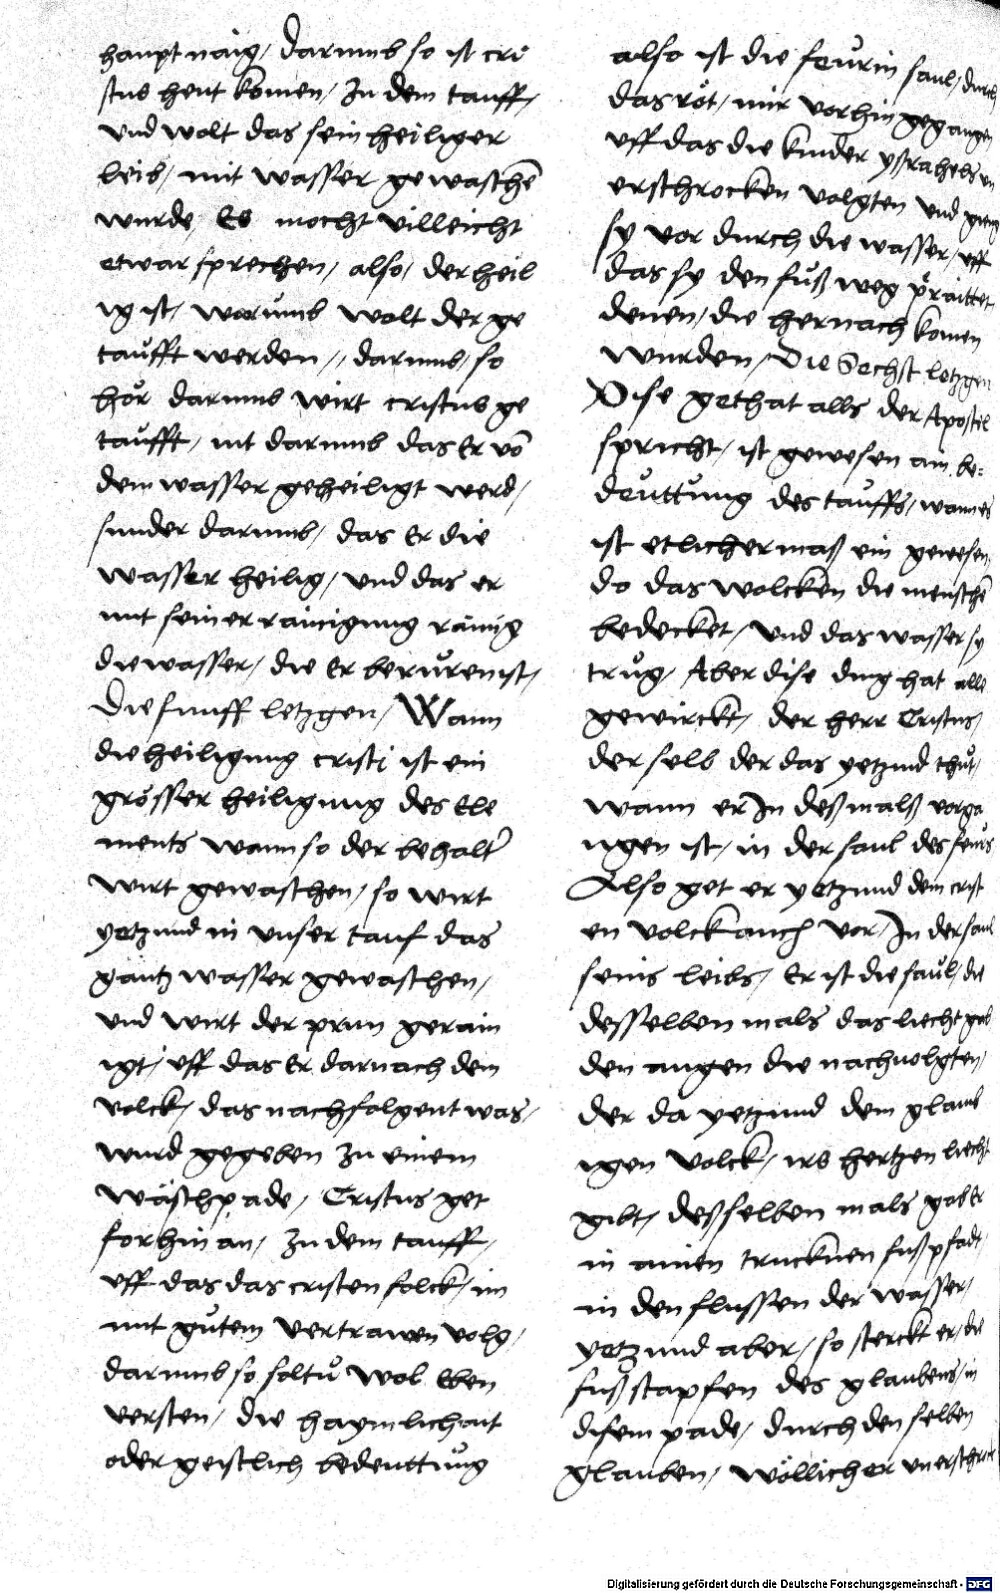 haupt naig / darumb so ist cri
stus heut komen / Jn dem tauff /
vnd wolt das sein heiliger
leib / mit wasser gewaschē
wurde / Es mocht villeicht
etwar sprechen / also / der heil
ig ist / warumb wolt der ge
taůfft werden / / darumb / so
hör darumb wirt cristus ge
taůfft / nit darumb das Er vō
dem wasser geheiligt werd /
sunder darumb / das Er die
wasser heilig / vnd das er
mit seiner rainigung rainig
die wasser / die Er berůren ist /
Die funff letzgen / Wann
die heiligung cristi ist ein
grösser heiligung des Ele
ments wann so der behalt'
wirt gewaschen / so wirt
yetzund in vnser tauf das
gantz wasser gewaschen /
vnd wirt der prun gerain
igt / vff das Er darnach dem
volck / das nachfolgent was /
wurd gegeben zu einem
wäschpade / Cristus get
forhin an / zu dem tauff /
vff das das cristen folck / im
mit gůtem vertrawen volg /
darumb so soltů wol Eben
versten / die haymlichait
oder geistlich bedeuttůng
also ist die feůrin saul / durch
das röt / mir vorhin gegangen
vff das die kinder ysrahels vn
erschrocken volgten vnd gieng
sy vor durch die wasser / vff
das sy den fůß weg präittet
denen / die hernach komen
wurden / Die Sechst letzgen
Dise gethat alls der Apostel
spricht / ist gewesen ain be-
deůttůng des tauffs / wann es
ist etlicher maß ein gewesen
do das wolcken die menschē
bedecket / vnd das wasser sy
trůg / Aber dise ding hat alle
gewirckt / der herr Cristus /
der selb der das yetzund thůt /
wann er Jn deßmalß vorga
ngen ist / in der saul des feurs
Also get er yetzund dem crist
en volck auch vor / Jn der saul
seins leibs / Er ist die saůl / die
desselben mals das liecht gab
den augen die nachuolgten /
der da yetzund dem glaub
igen volck / irs hertzen liecht
gibt / deßselben mals gab er
in ainen trucknen fußpfadt /
in den flussen der wasser /
yetzund aber / so sterckt er / die
fußstapfen des glaubens / in
disem pade / durch den selben
glauben / wöllicher vnerschrock
Digitalisierung gefördert durch die Deutsche Forschungsgemeinschaft - DFG